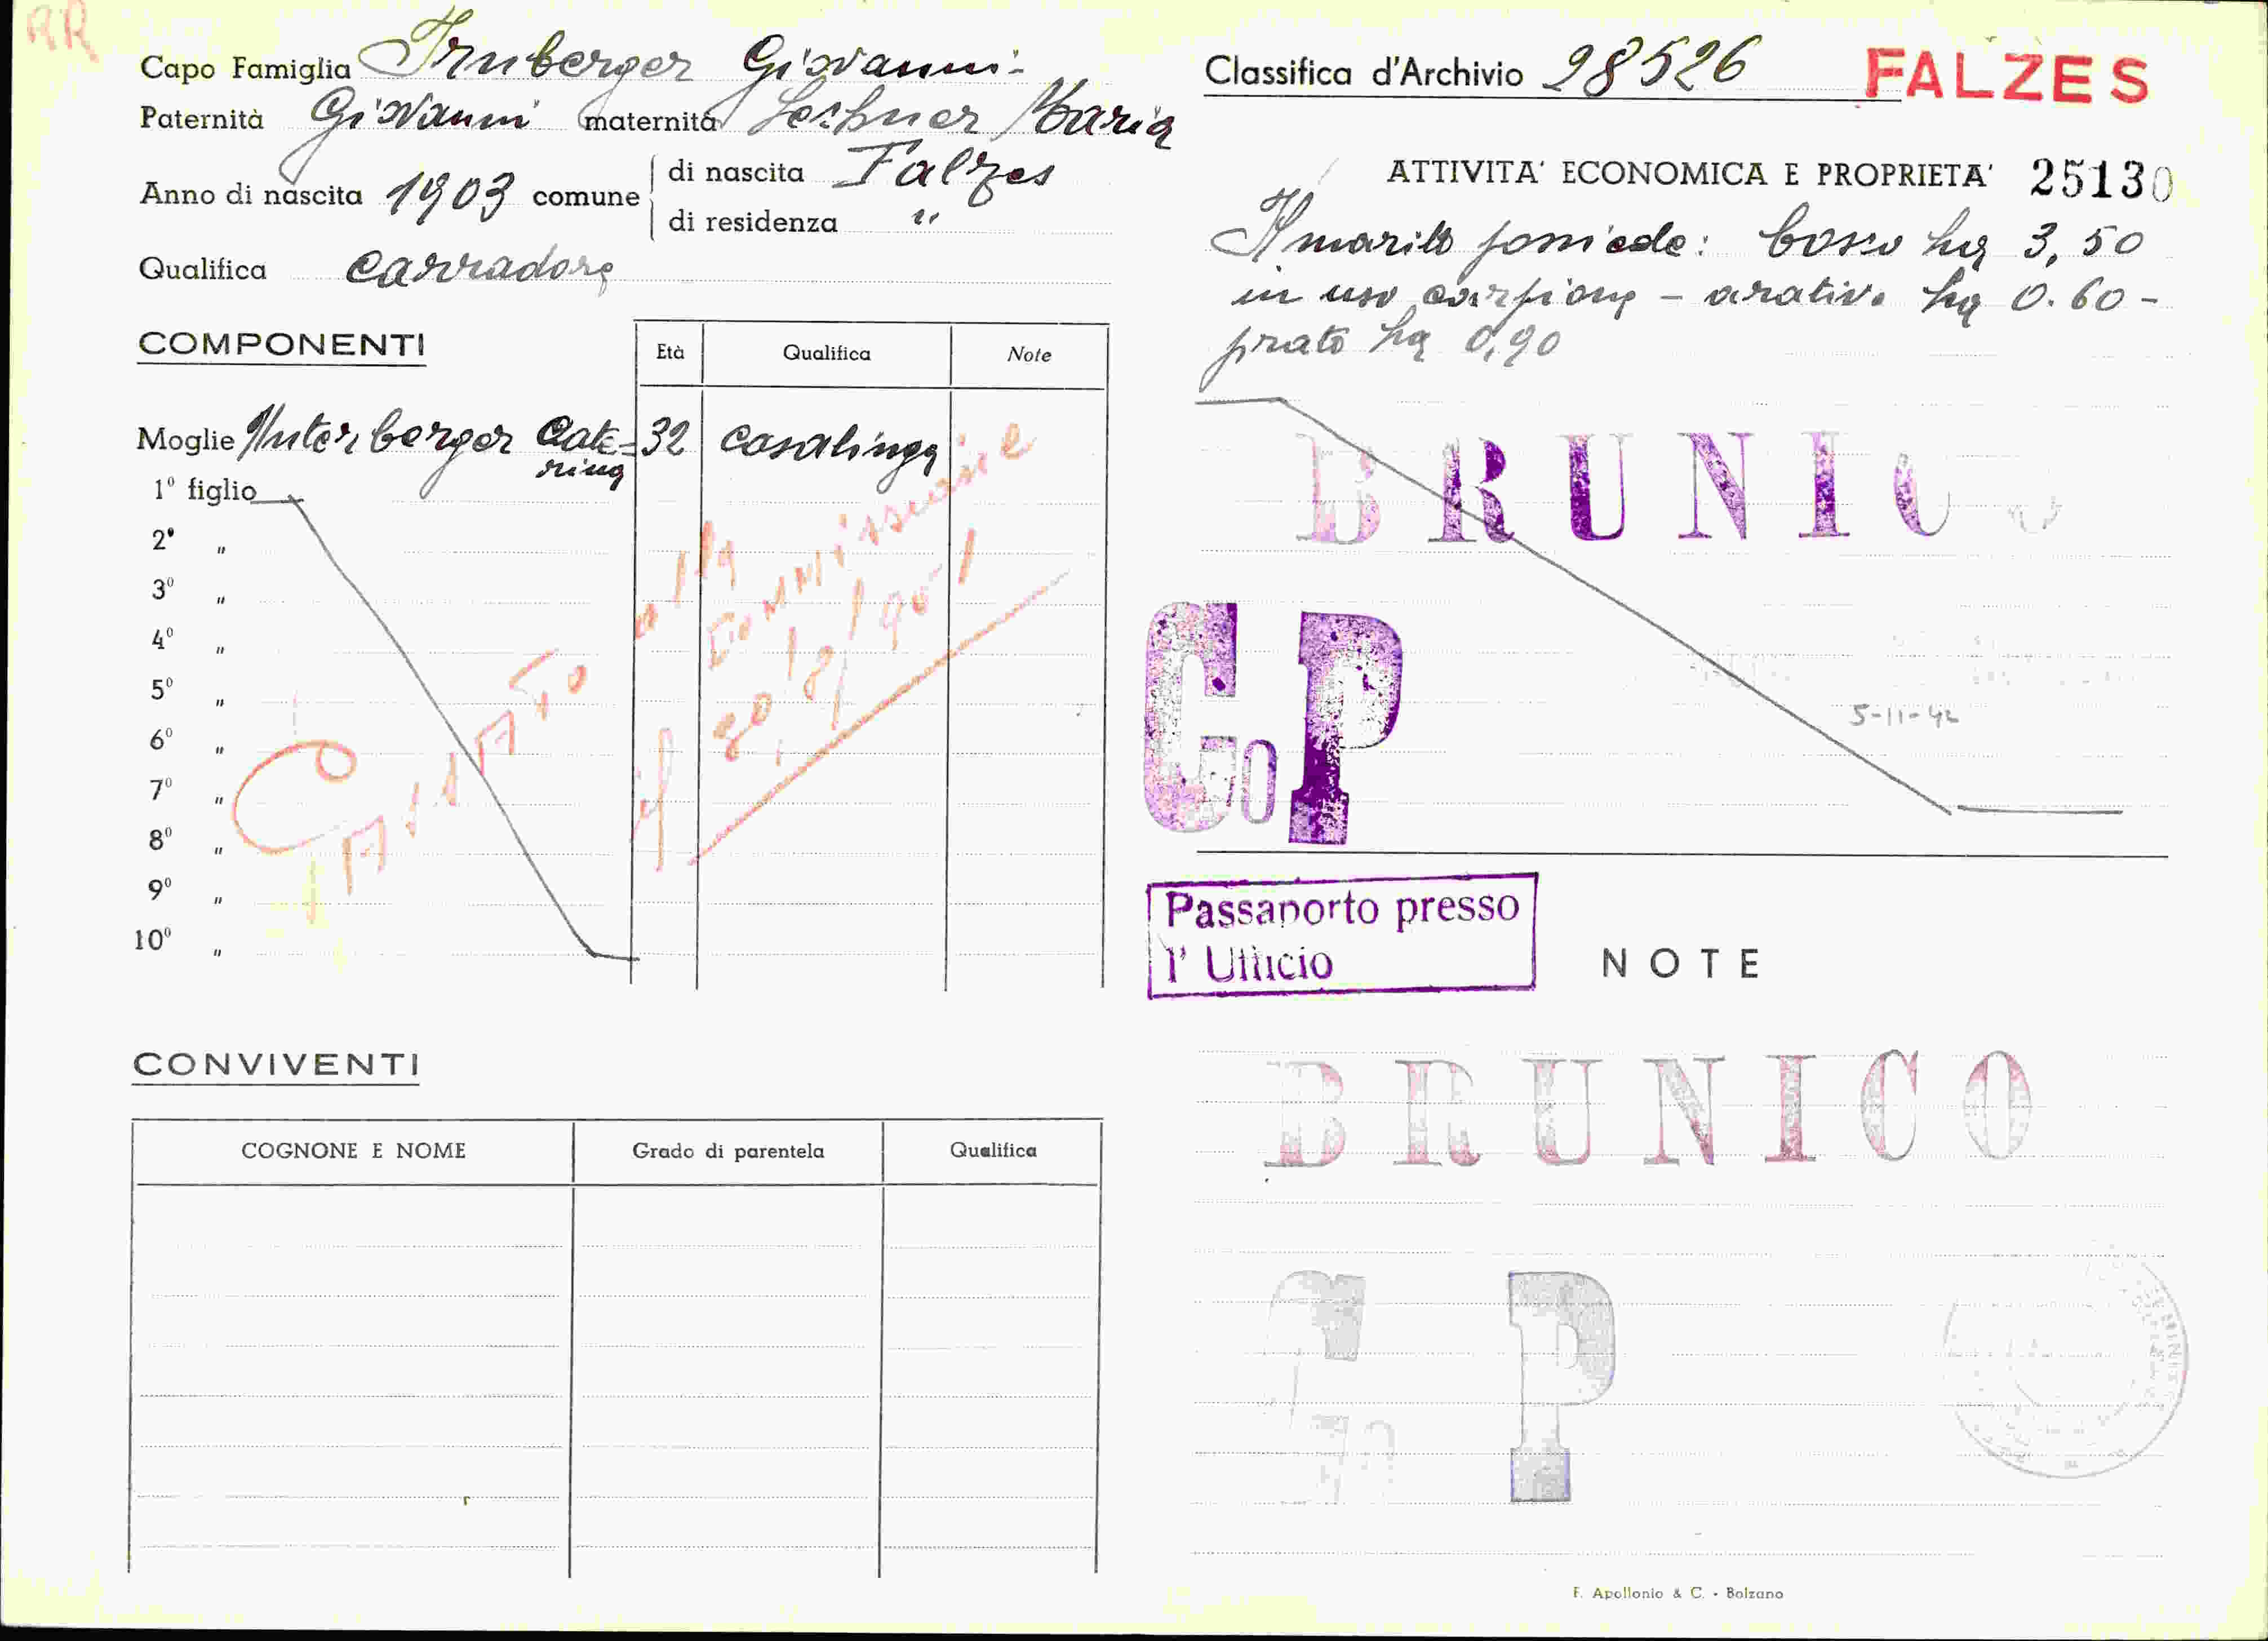 RR
Capo Famiglia Gruberger Giovanni-
Paternità Giovanni maternità Lechner Maria
Anno di nascita 1903 comune di nascita Falzes
di residenza "
Qualifica carradore
COMPONENTI
Età Qualifica Note
Moglie Unterberger Cate= 32 casalinga
rina
1° figlio
2° "
3° "
4° "
5° "
6° "
7° "
8° "
9° "
10° "
CONVIVENTI
COGNONE E NOME Grado di parentela Qualifica
Classifica d'Archivio 28526 FALZES
ATTIVITA' ECONOMICA E PROPRIETA' 25130
Il marito possiede: bosco ha 3,50
in uso - arativo ha 0.60 -
prato ha 0,90
BRUNICO
Go P
5-11-42
Passaporto presso
l' Ufficio
NOTE
BRUNICO
Go P
F. Apollonio & C. - Bolzano